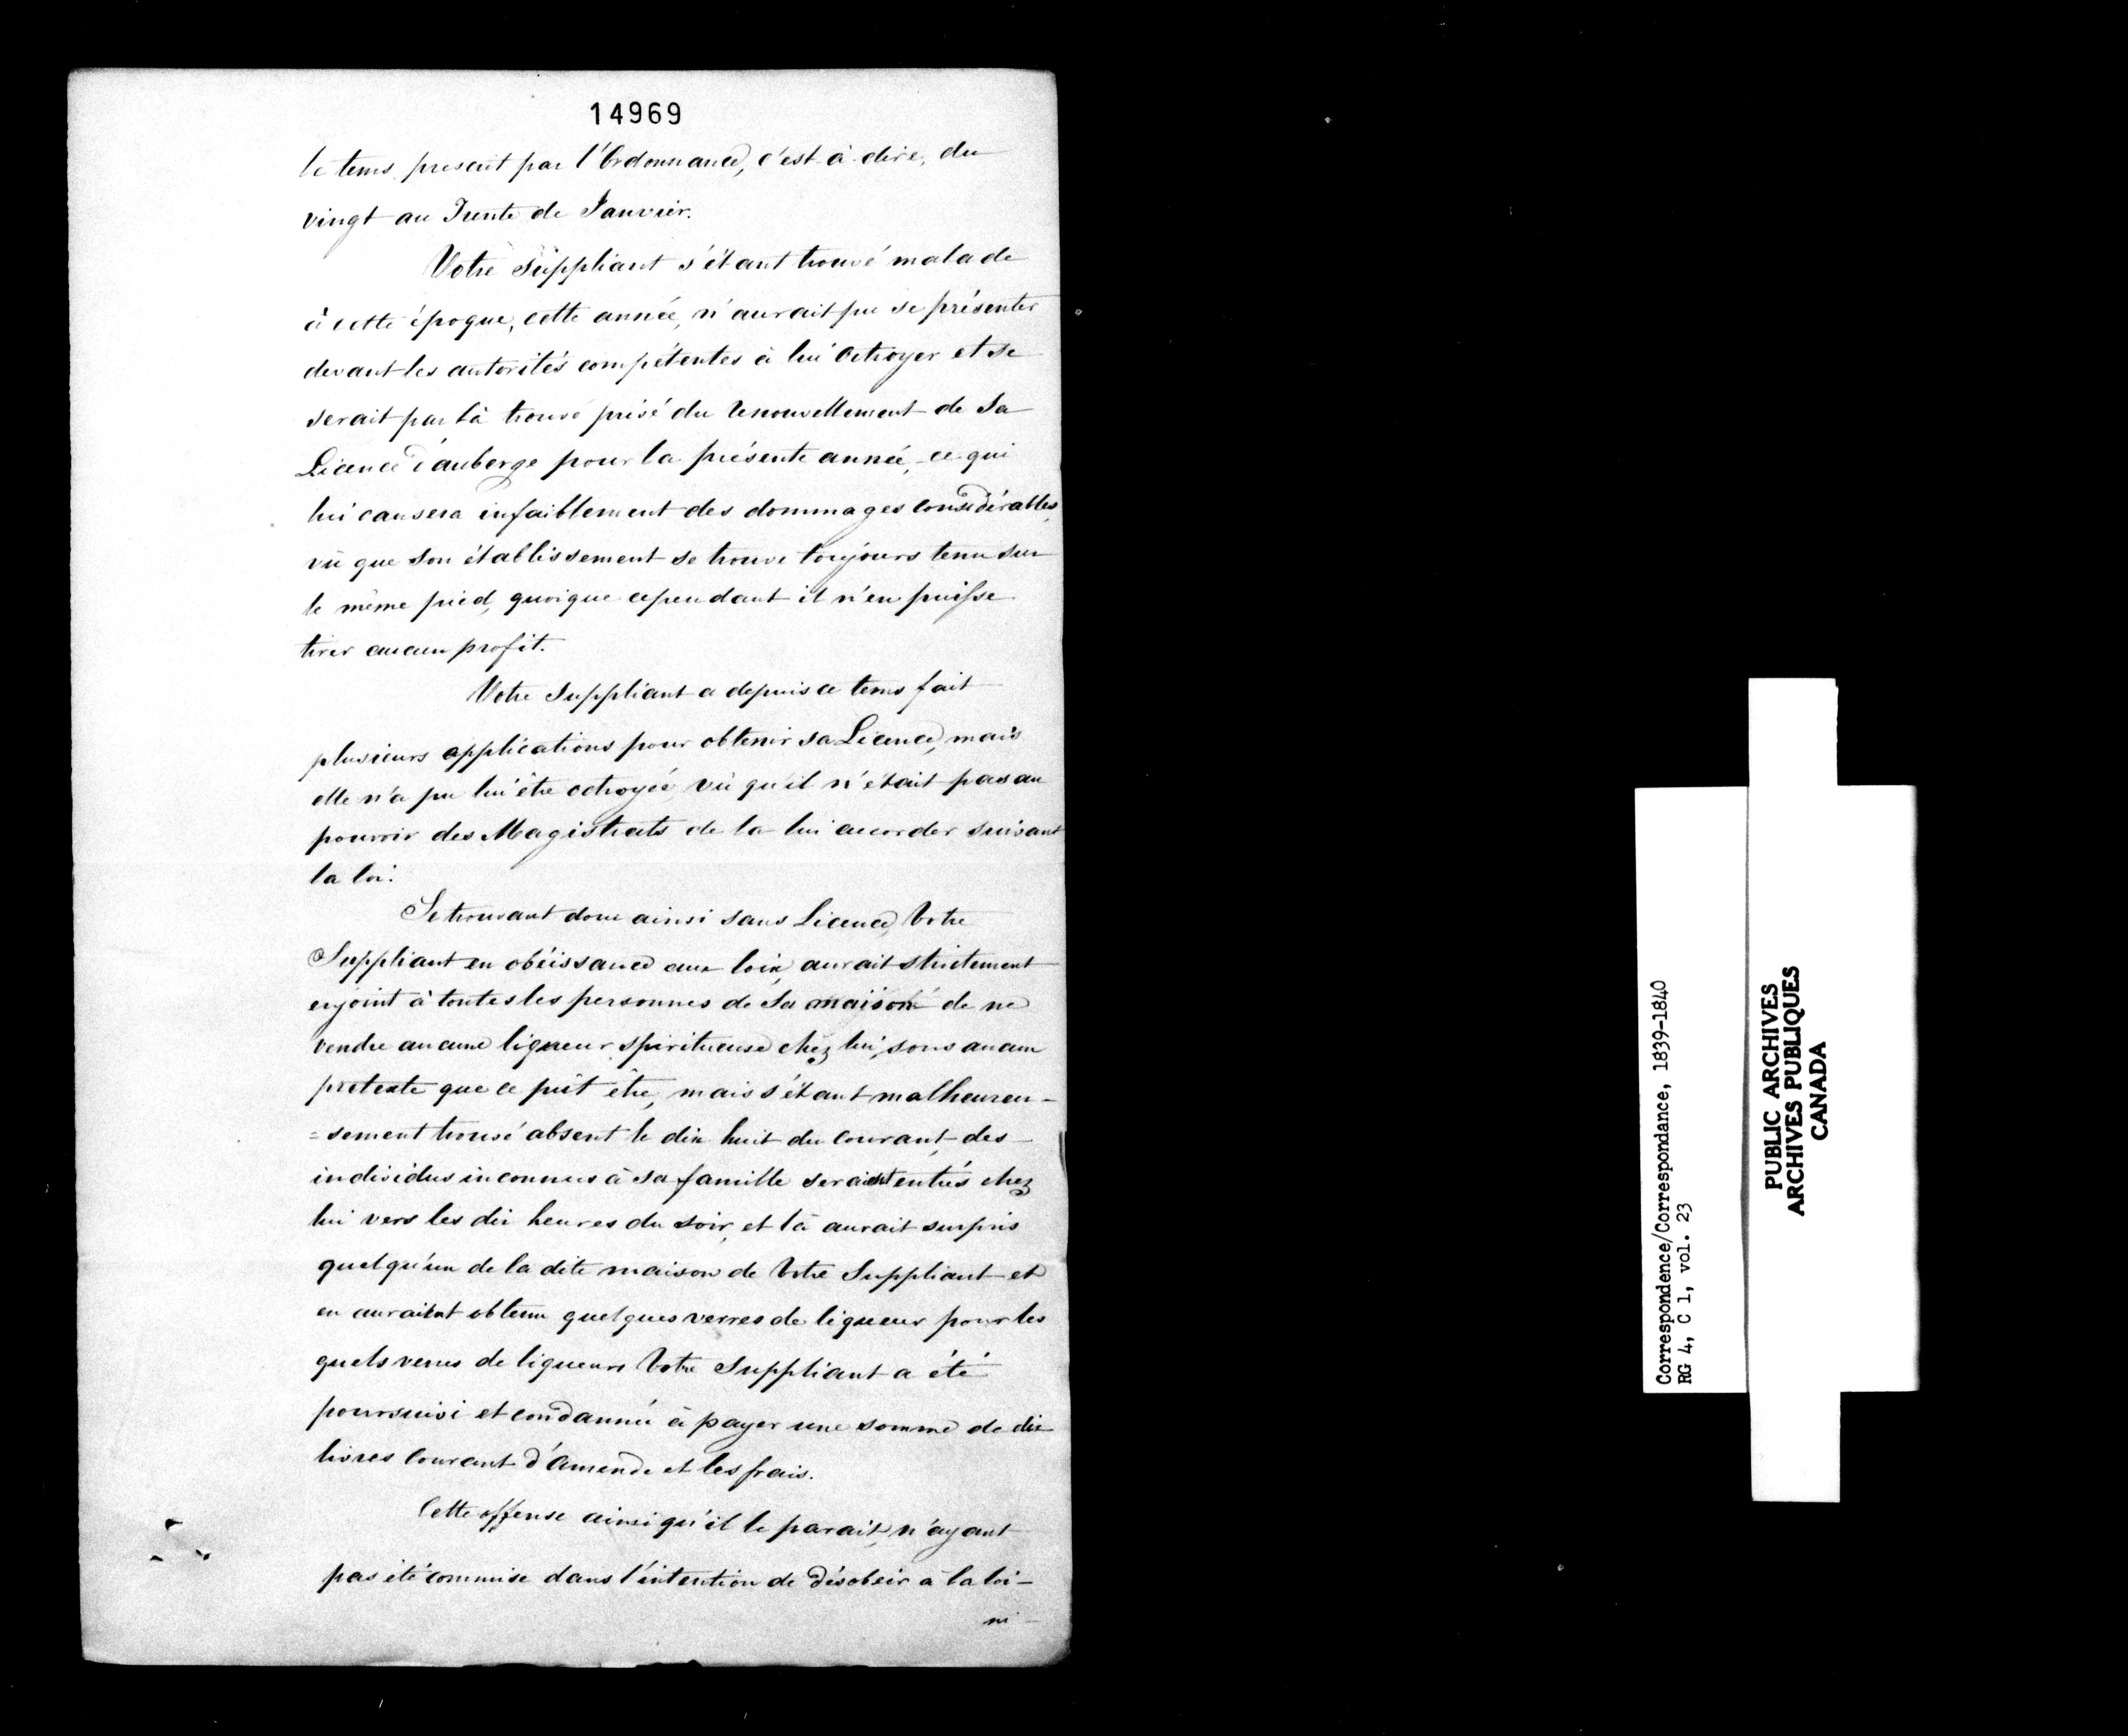 14969
le tems prescrit par l'Ordonnance, c'est à dire, du
vingt au Trente de Janvier.
Votre Suppliant s'étant trouvé malade
à cette époque, cette année, n'aurait pu se présenter
devant les autorités compétentes à lui Octroyer et se
serait par là trouvé privé du Renouvellement de Sa
Licence d'auberge pour la présente année, ce qui
lui causera infaiblement des dommages considérables,
vû que son établissement se trouve toujours tenu sur
le même pied, quoique cependant il n'en puisse
tirer aucun profit.
Votre Suppliant a depuis ce tems fait
plusieurs applications pour obtenir sa Licence, mais
elle n'a pu lui être octroyée, vû qu'il n'était pas au
pouvoir des Magistrats de la lui accorder suivant
la loi.
Se trouvant donc ainsi sans Licence, Votre
Suppliant en obéissance aux loix, aurait strictement
enjoint à toutes les personnes de Sa maison de ne
vendre aucune liqueur spiritueuse chez lui, sous aucun
pretexte que ce pût être, mais s'étant malheureu-
=sement trouvé absent le dix huit du Courant, des
individus inconnus à sa famille seraient entrés chez
lui vers les dix heures du soir, et là aurait surpris
quelqu'un de la dite maison de Votre Suppliant et
en auraient obtenu quelques verres de liqueur pour les
quels verres de liqueurs Votre Suppliant a été
poursuivi et condamné à payer une somme de dix
livres Courant d'Amende et les frais.
Cette offense ainsi qu'il le parait, n'ayant
pas été commise dans l'intention de désobeir à la loi -
ni
Correspondence/Correspondance, 1839-1840
RG 4, C 1, vol. 23
PUBLIC ARCHIVES
ARCHIVES PUBLIQUES
CANADA